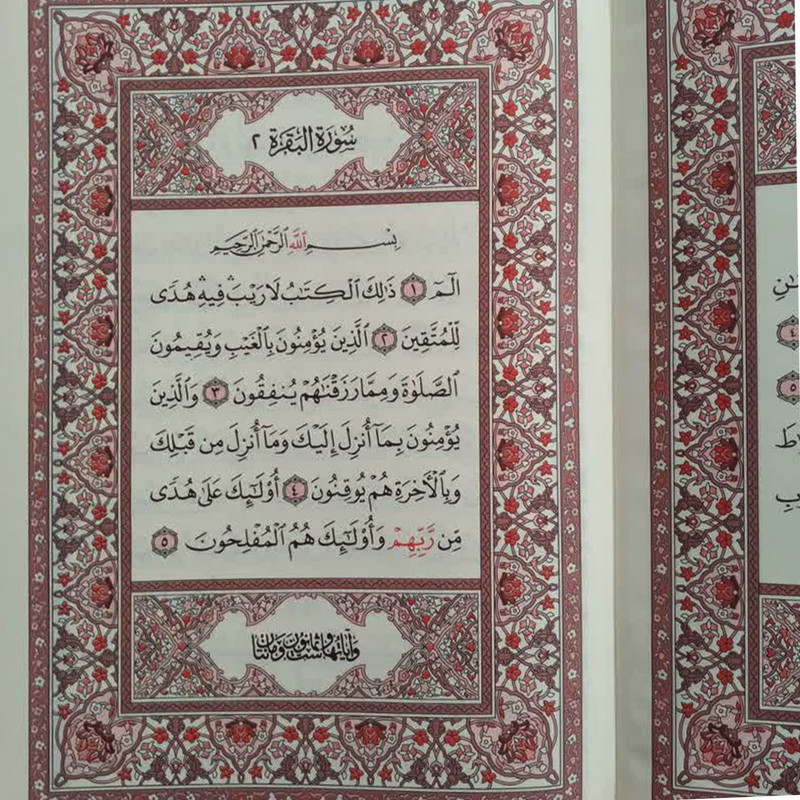 سُورَةُ الْبَقَرَةِ ٢
بِسْمِ اللَّهِ الرَّحْمَٰنِ الرَّحِيمِ
الٓمٓ ١ ذَٰلِكَ الْكِتَٰبُ لَا رَيْبَ ۛ فِيهِ ۛ هُدًى
لِلْمُتَّقِينَ ٢ الَّذِينَ يُؤْمِنُونَ بِالْغَيْبِ وَيُقِيمُونَ
الصَّلَوٰةَ وَمِمَّا رَزَقْنَٰهُمْ يُنفِقُونَ ٣ وَالَّذِينَ
يُؤْمِنُونَ بِمَآ أُنزِلَ إِلَيْكَ وَمَآ أُنزِلَ مِن قَبْلِكَ
وَبِالْأَخِرَةِ هُمْ يُوقِنُونَ ٤ أُو۟لَٰٓئِكَ عَلَىٰ هُدًى
مِّن رَّبِّهِمْ وَأُو۟لَٰٓئِكَ هُمُ الْمُفْلِحُونَ ٥
وَآيَاتُهَا سِتٌّ وَثَمَانُونَ وَمِائَتَانِ
٤
٥